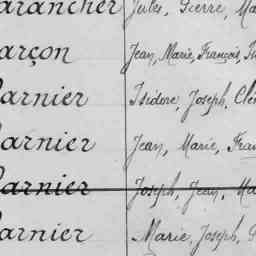 arancher Jules, Pierre, Ma
arçon Jean, Marie, François,
arnier Isidore, Joseph, Clé
arnier Jean, Marie, Fran
arnier Joseph, Jean, Ma
arnier Marie, Joseph,